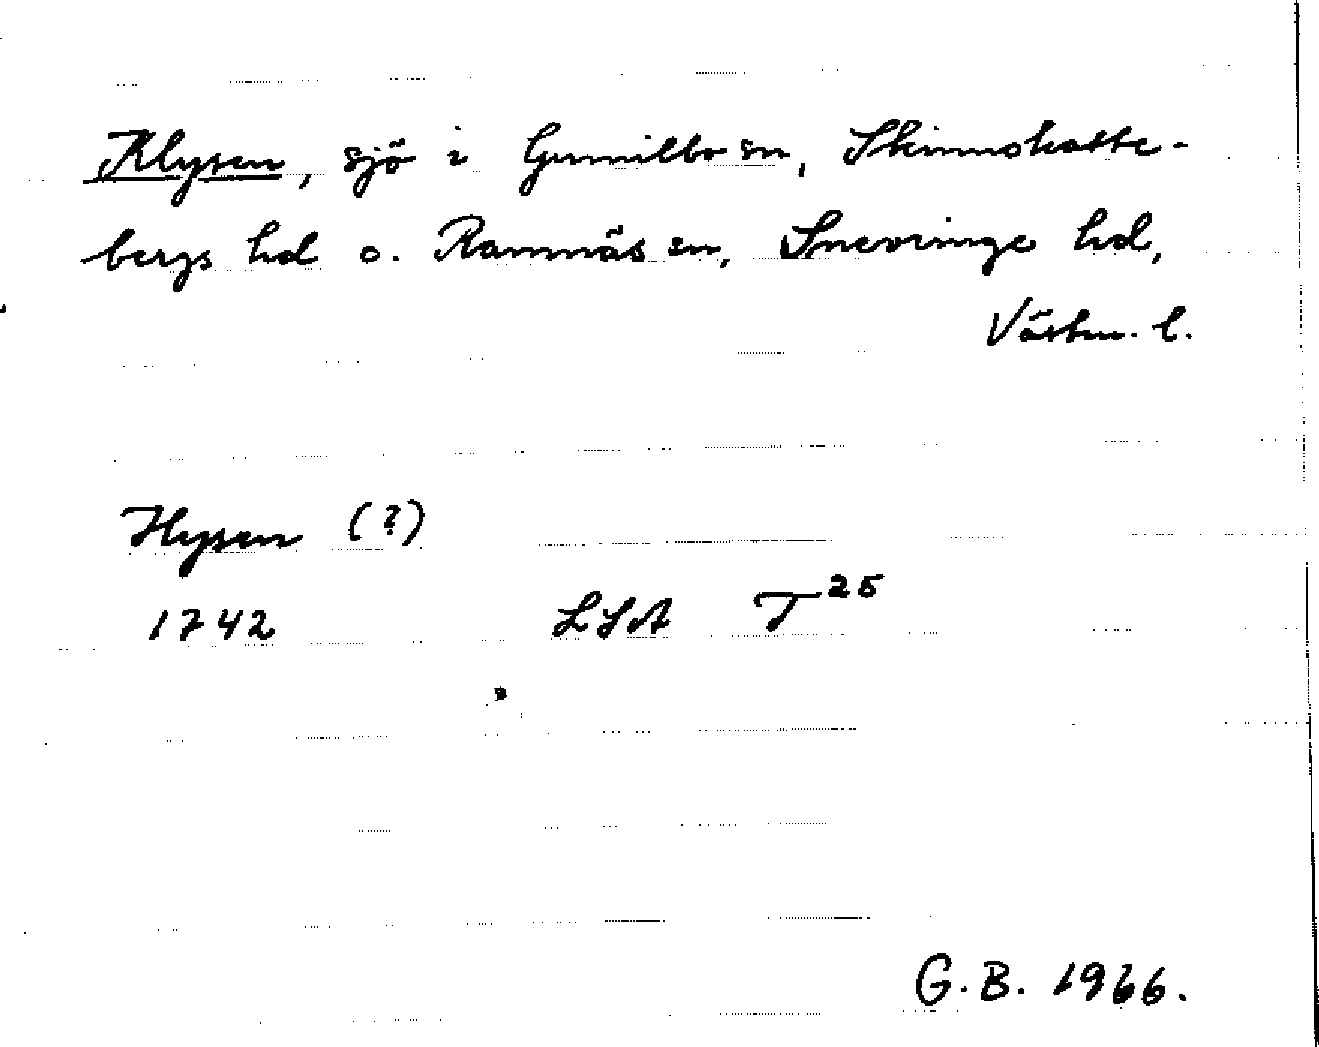 Klysen, sjö i Gunnilbo sn, Skinnskatte-
bergs hd o. Ramnäs sn, Snevringe hd,
Västm. l.
Hysen (?)
1742 LSA T25
G.B. 1966.